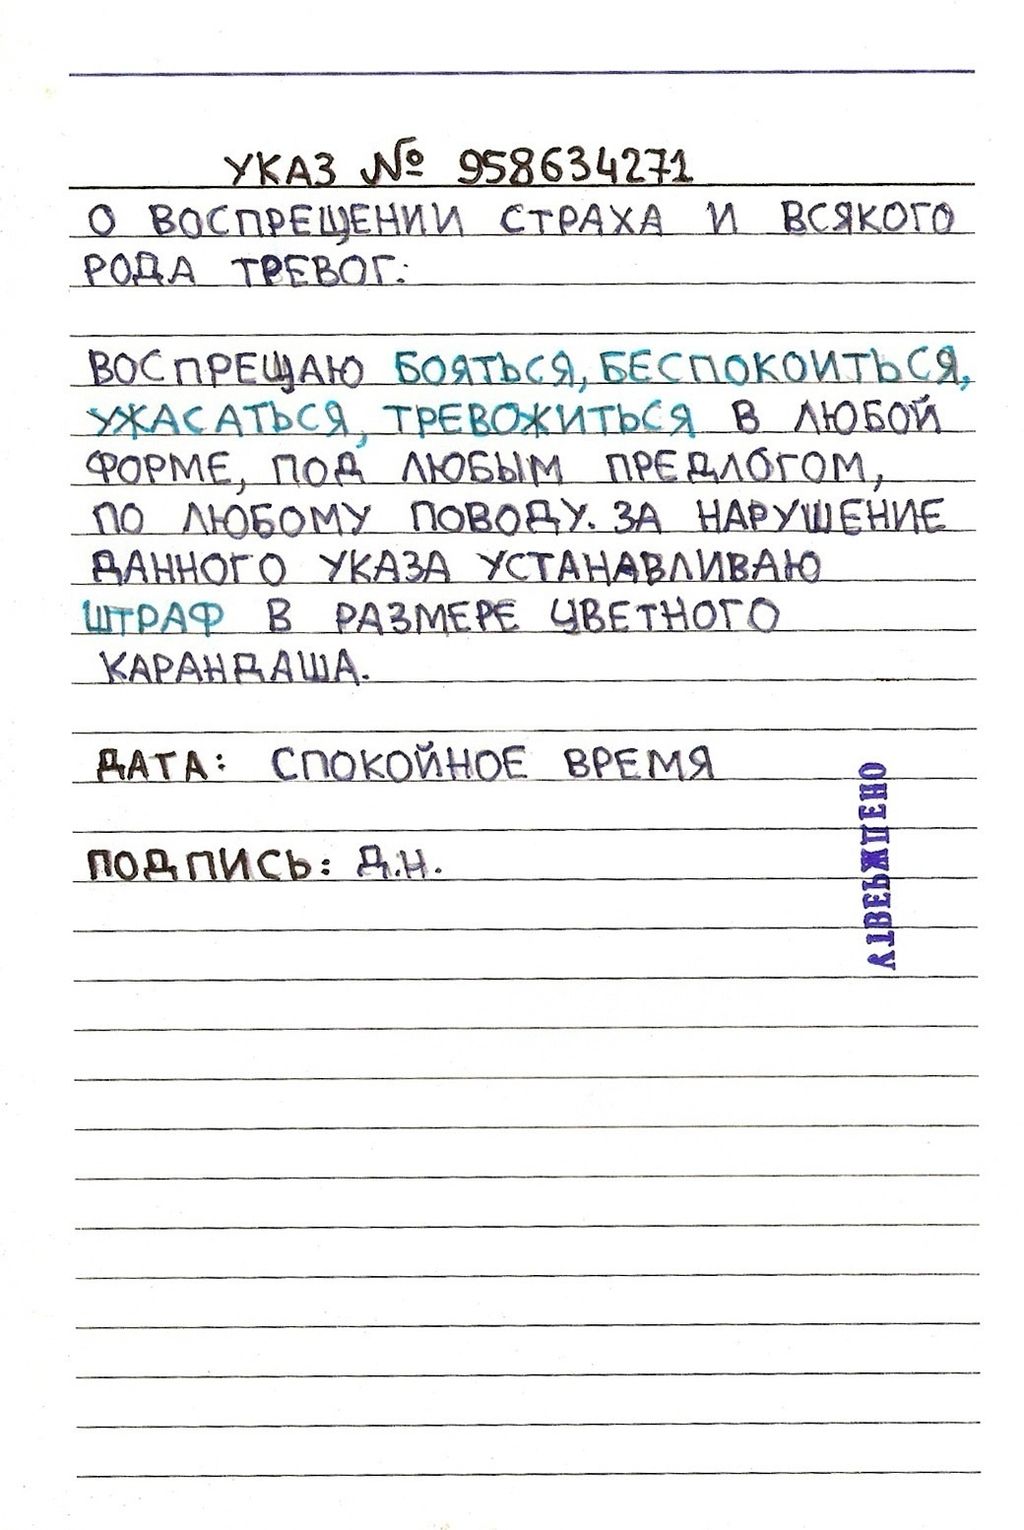 УКАЗ № 958634271
О ВОСПРЕЩЕНИИ СТРАХА И ВСЯКОГО
РОДА ТРЕВОГ:
ВОСПРЕЩАЮ БОЯТЬСЯ, БЕСПОКОИТЬСЯ,
УЖАСАТЬСЯ, ТРЕВОЖИТЬСЯ В ЛЮБОЙ
ФОРМЕ, ПОД ЛЮБЫМ ПРЕДЛОГОМ,
ПО ЛЮБОМУ ПОВОДУ. ЗА НАРУШЕНИЕ
ДАННОГО УКАЗА УСТАНАВЛИВАЮ
ШТРАФ В РАЗМЕРЕ ЦВЕТНОГО
КАРАНДАША.
ДАТА: СПОКОЙНОЕ ВРЕМЯ
ПОДПИСЬ: Д.Н.
УТВЕРЖДЕНО